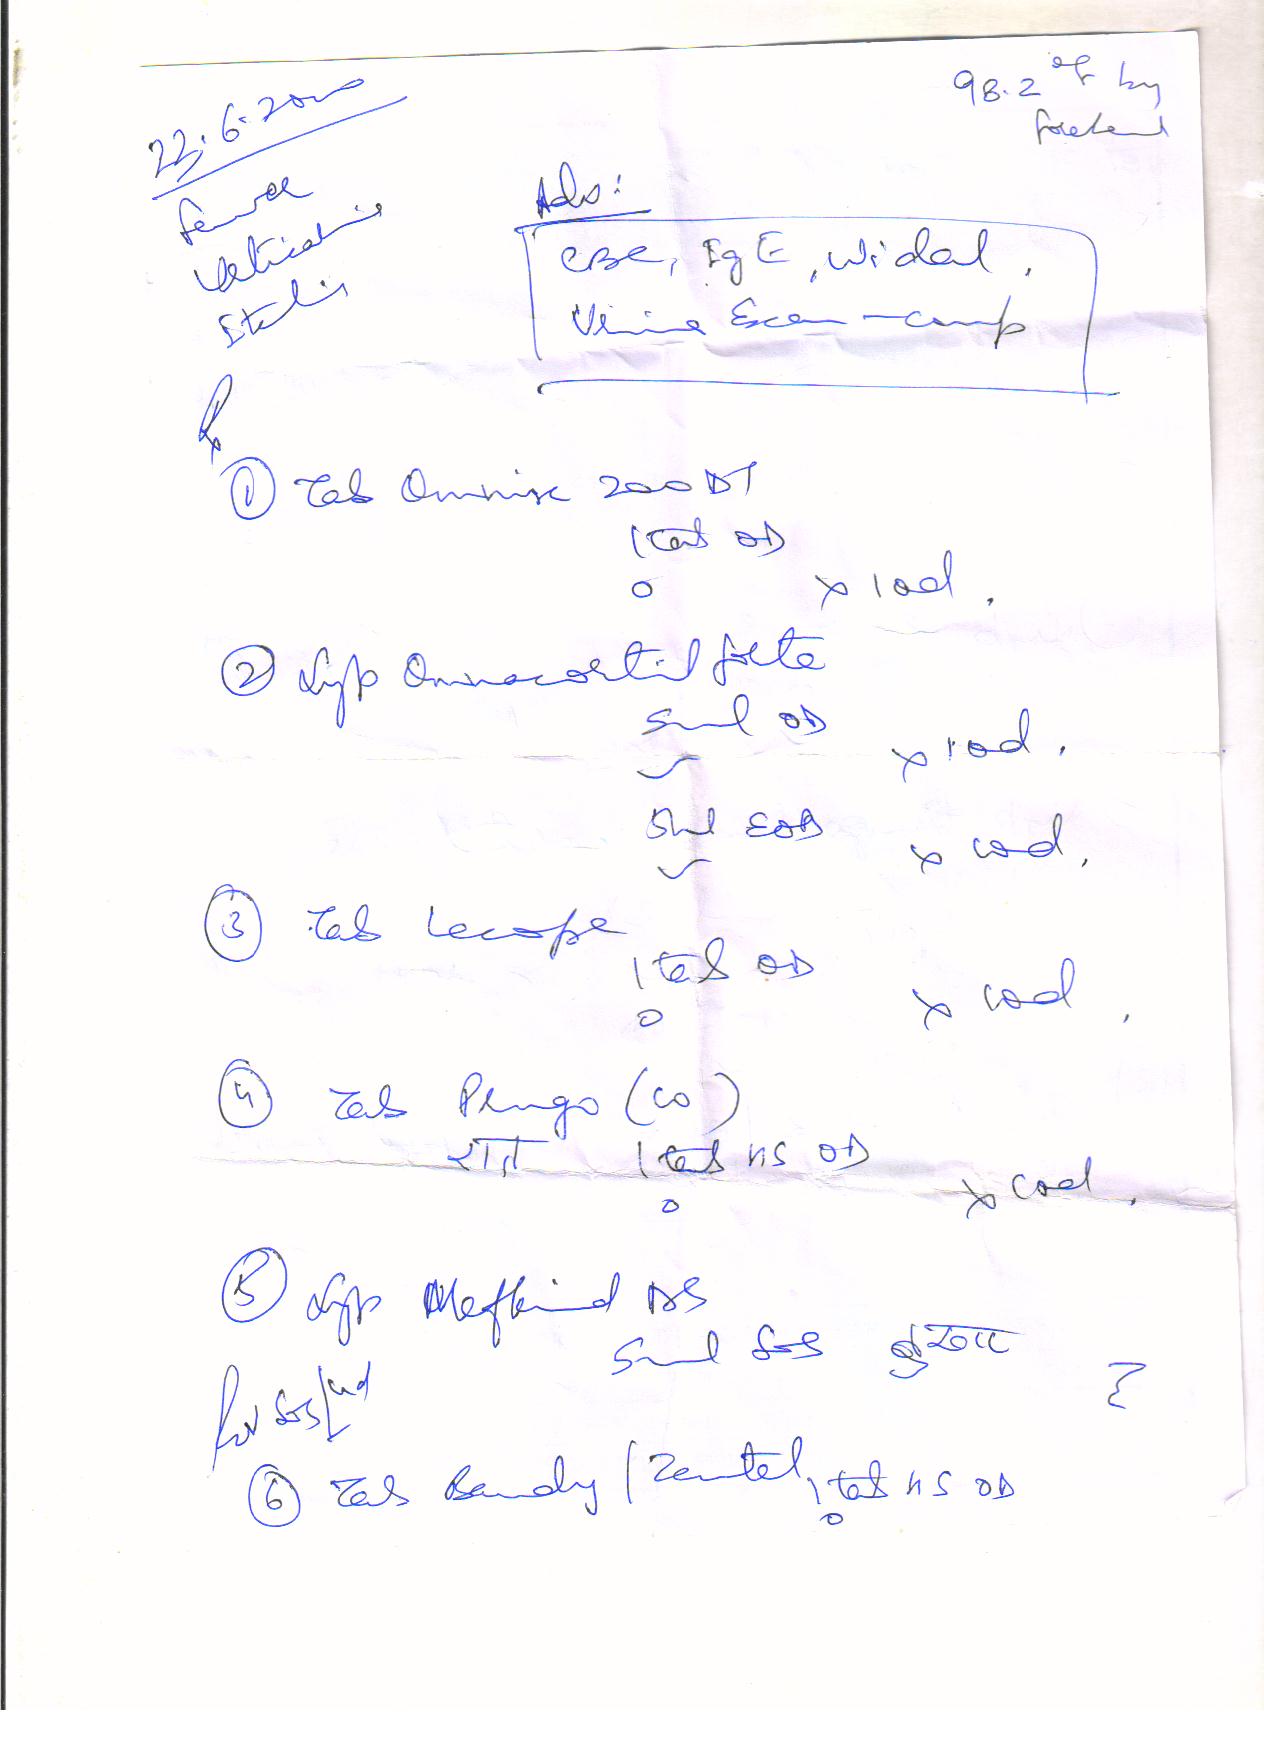 98.2 °F by
forehead
22.6.2020
Fever
Urticaria
Itching
Adv:
CBC, IgE, Widal,
Urine Exam - comp
Rx
① Tab Omnix 200 DT
1 tab OD
x 10d.
② Syp Omnacortil forte
5ml OD x 10d.
5ml EOD x 10d.
③ Tab Lecope
1 tab OD
x 10d,
④ Tab (10)
1 tab HS OD
x 10d,
⑤ Syp Mefkind DS
5ml SOS बुखार
⑥ Tab Bandy / Zentel, 1 tab HS OD